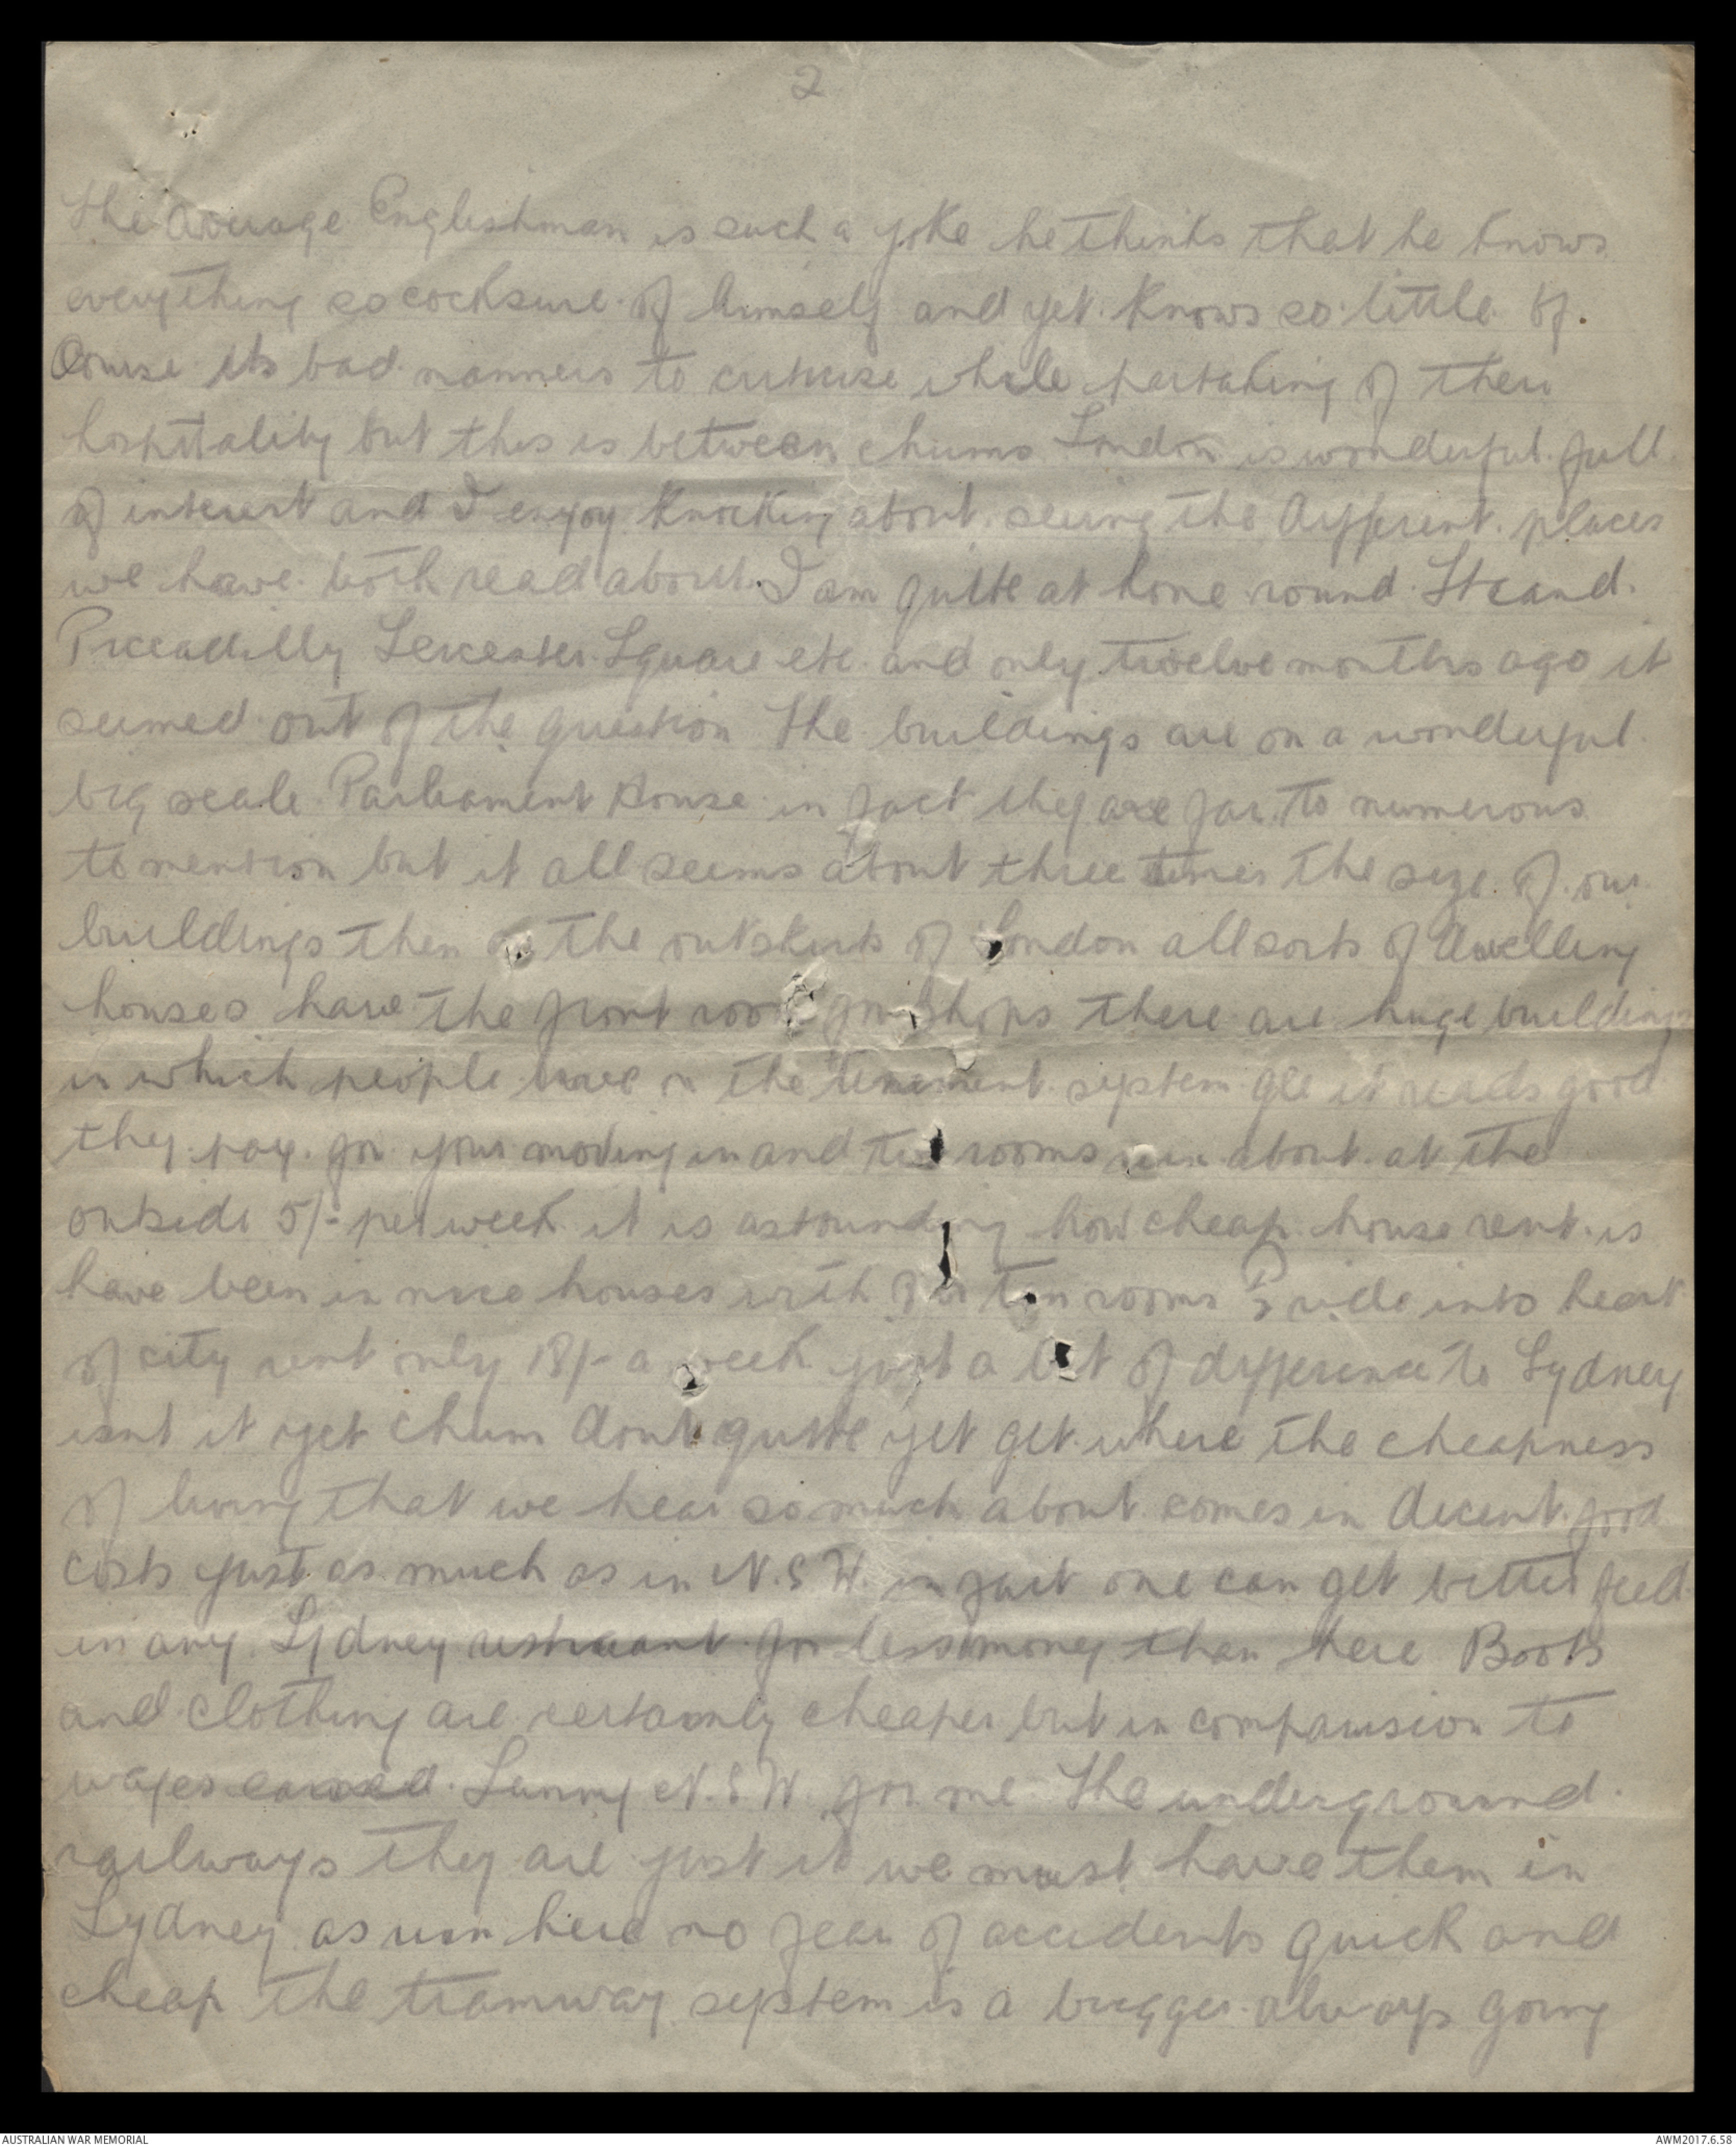 2
The Average Englishman is such a joke he thinks that he knows
everything so cocksure of himself and yet knows so little of.
Course its bad manners to criticise while partaking of their
hospitality but this is between chums London is wonderful full
of interest and I enjoy knocking about seeing the different places
we have both read about. I am quite at home round Strand.
Piccadilly Leicester Square etc and only twelve months ago it
seemed out of the question The buildings are on a wonderful
big scale Parliament House in fact they are far to numerous
to mention but it all seems about three times the size of our
buildings then the outskirts of London all sorts of dwelling
houses have the front room for shops there are huge buildings
in which people live on the tenement system gee it reads good
they pay for your moving in and two rooms run about at the
outside 5/- per week it is astounding how cheap house rent is
have been in nice houses with ten rooms ride into heart
of city rent only 18/- a week just a bit of difference to Sydney
isnt it yet chum dont quite yet get where the cheapness
of living that we hear so much about comes in decent food
costs just as much as in N.S.W. in fact one can get better feed
in any Sydney restraant for less money than here Boots
and clothing are certainly cheaper but in comparision to
wages earned. Sunny N.S.W for me The underground
railways they are just it we must have them in
Sydney as run here no fear of accidents quick and
cheap the tramway system is a bugger always going
AUSTRALIAN WAR MEMORIAL
AWM2017.6.58